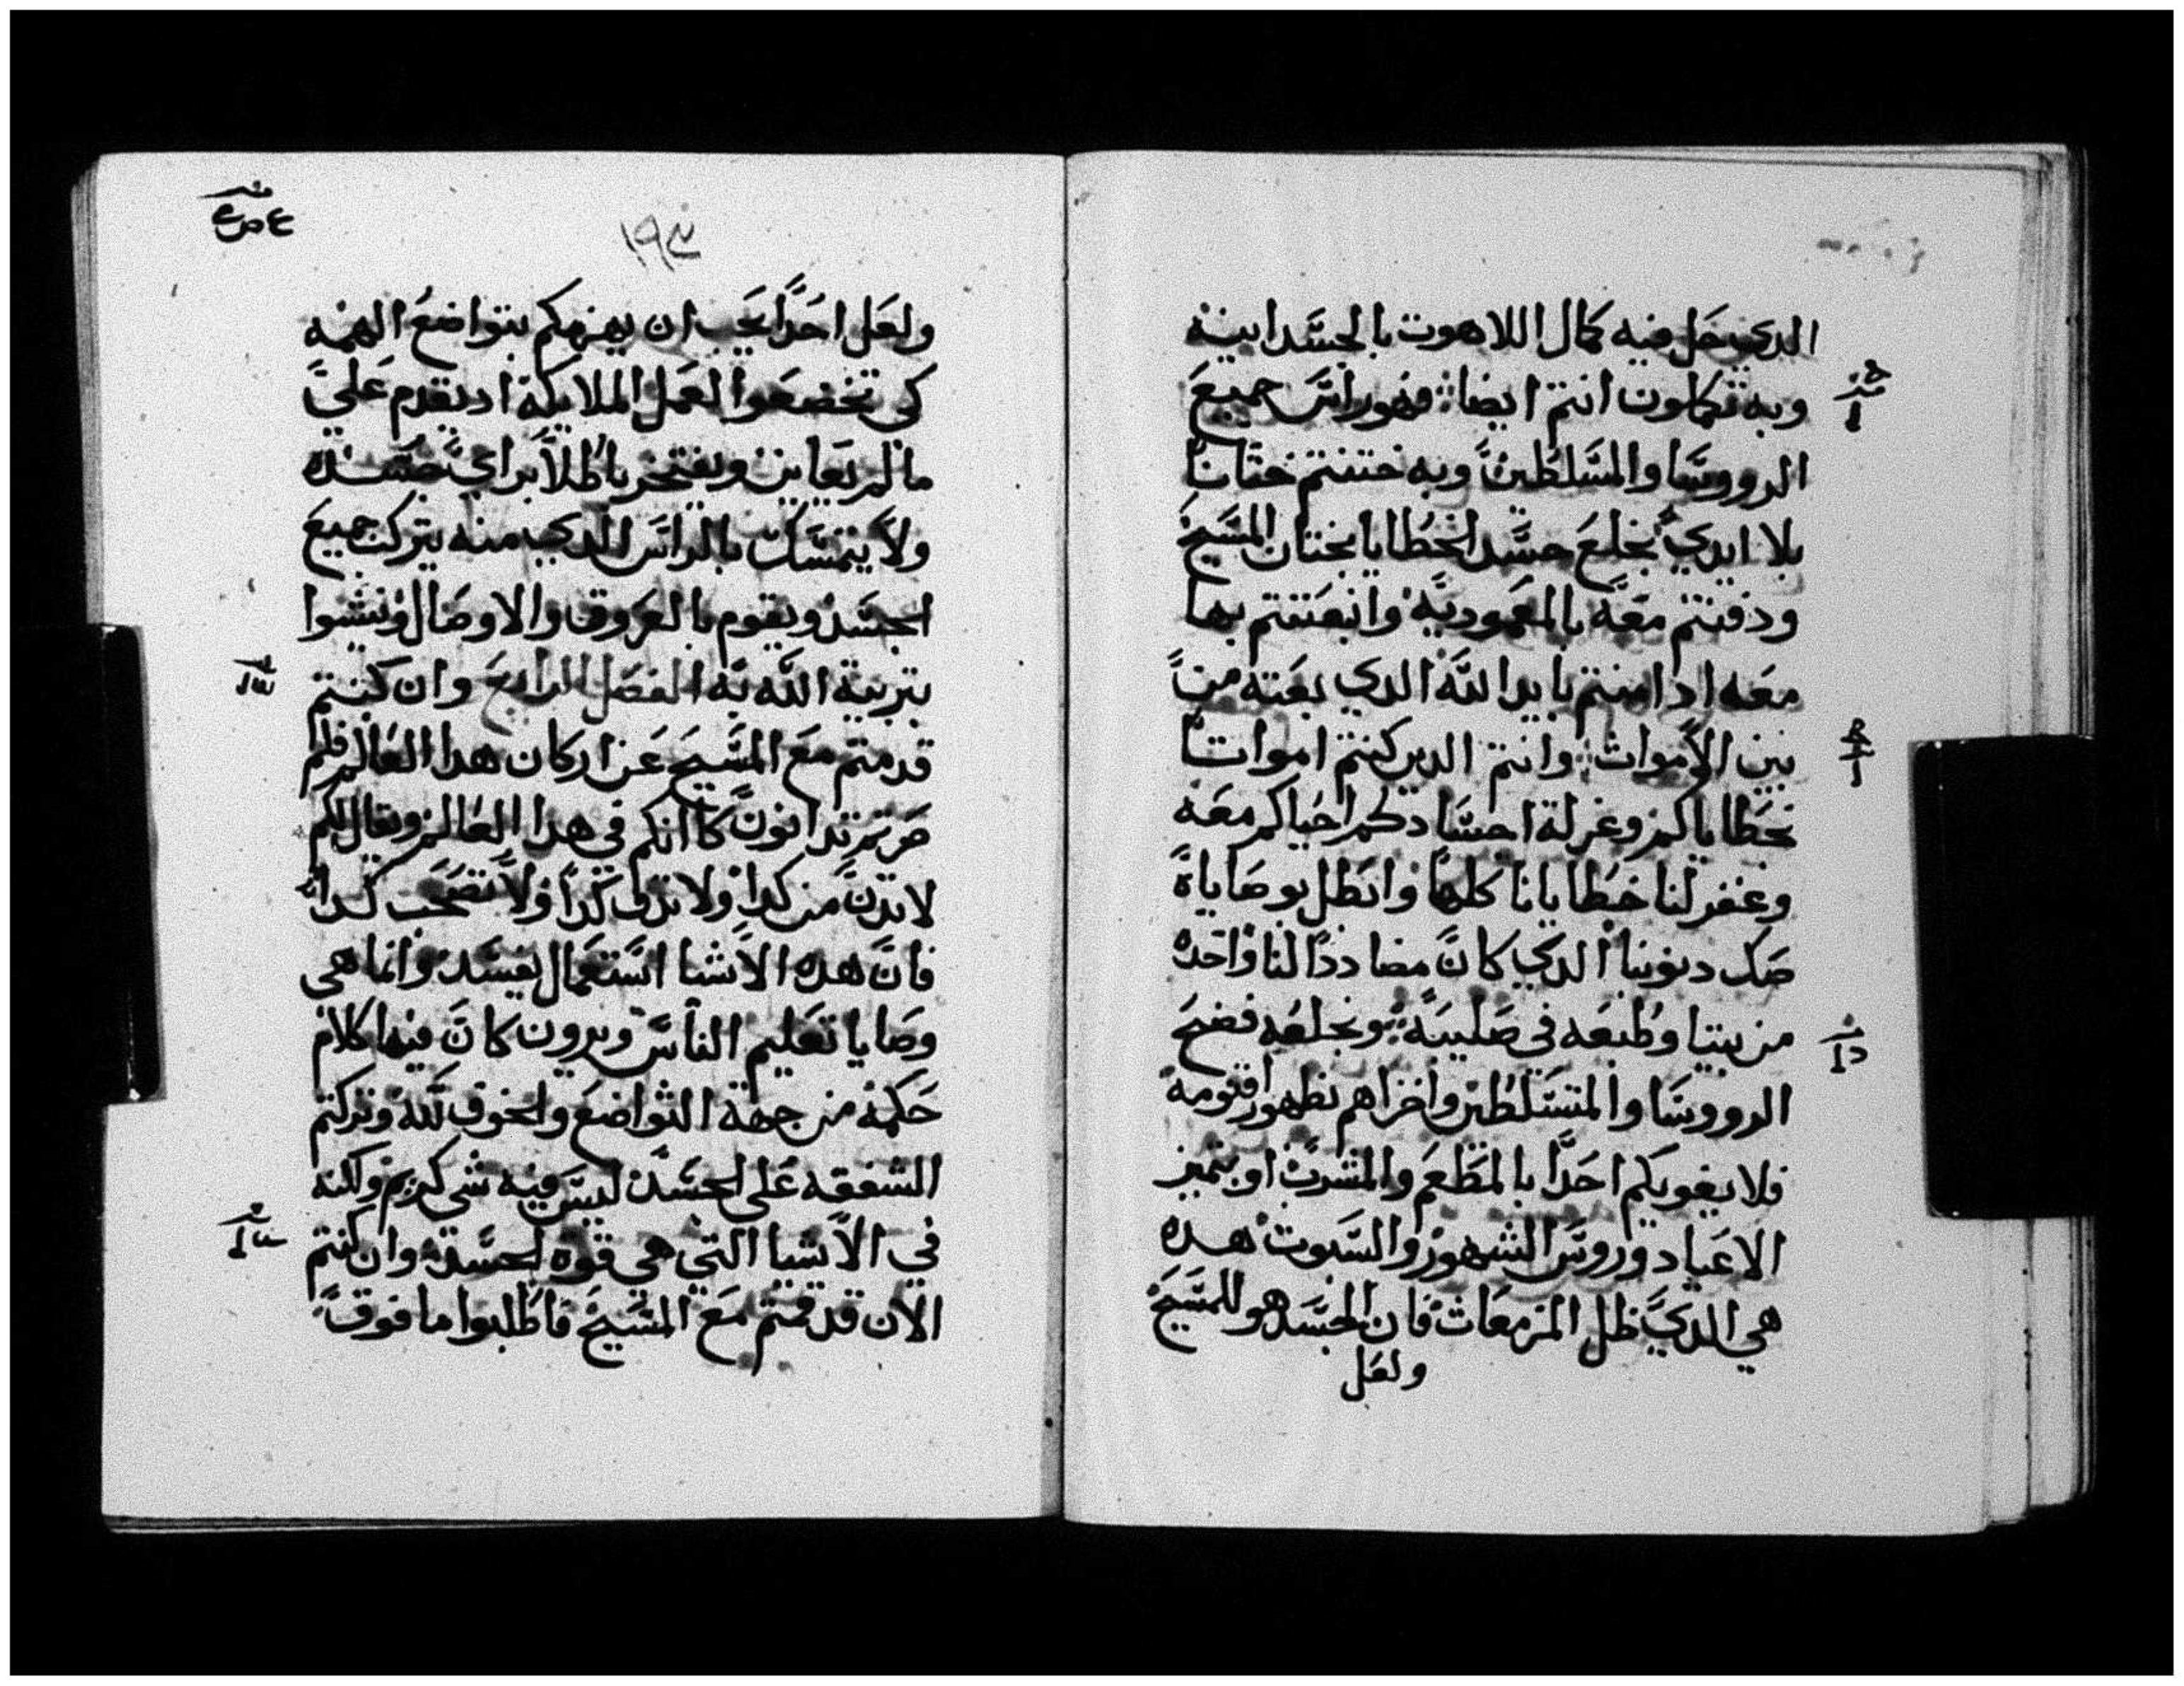 الدي حل فيه كمال اللاهوت بالجسد ابينه
وبه تكملون انتم ايضا فهو راس جميع
الرووسا والمسلطين وبه ختنتم ختانا
بلا ايدي بخلع جسد الخطايا بختان المسيح
ودفنتم معه بالمعموديه وانبعتتم بها
معه اد امنتم بايد الله الدي بعته من
بين الاموات وانتم الدين كنتم امواتا
بخطاياكم وغرلة اجسادكم احياكم معه
وغفر لنا خطايانا كلها وابطل بوصاياه
صك ديوننا الدي كان مضاددا لنا واخده
من بيننا وطبعه في صليبه وبخلعه فضح
الرووسا والمتسلطين واخزاهم بظهور اقنومه
فلا يغويكم احدا بالمطعم والمشرب او بتميز
الاعياد وروس الشهور والسبوت هده
هي الدي ظل المزمعات فان الجسد هو للمسيح
ولعل
١٩٤
ولعل احدا يحب ان يهزمكم بتواضع الهمه
كي تخضعوا لعمل الملايكة اد يقدم علي
مالم يعاين ويفتخر باطلا براي جسده
ولا يتمسك بالراس الدي منه يتركب جميع
الجسد ويقوم بالعروق والاوصال وينشوا
بتربية الله به الفصل الرابع وان كنتم
قد متم مع المسيح عن اركان هدا العالم فلم
صرتم تدانون كانكم في هدا العالم ويقال لكم
لا تدن من كدا ولا تدق كدا ولا تصحب كدا
فان هده الاشيا استعمال يفسد وانما هي
وصايا تعليم الناس ويرون كان فيها كلام
حكمه من جهة التواضع والخوف لله وتركتم
الشفقه على الجسد ليس فيه شي كريم ولكنه
في الاشيا التي هي قوة الجسد وان كنتم
الان قد قمتم مع المسيح فاطلبوا ما فوق